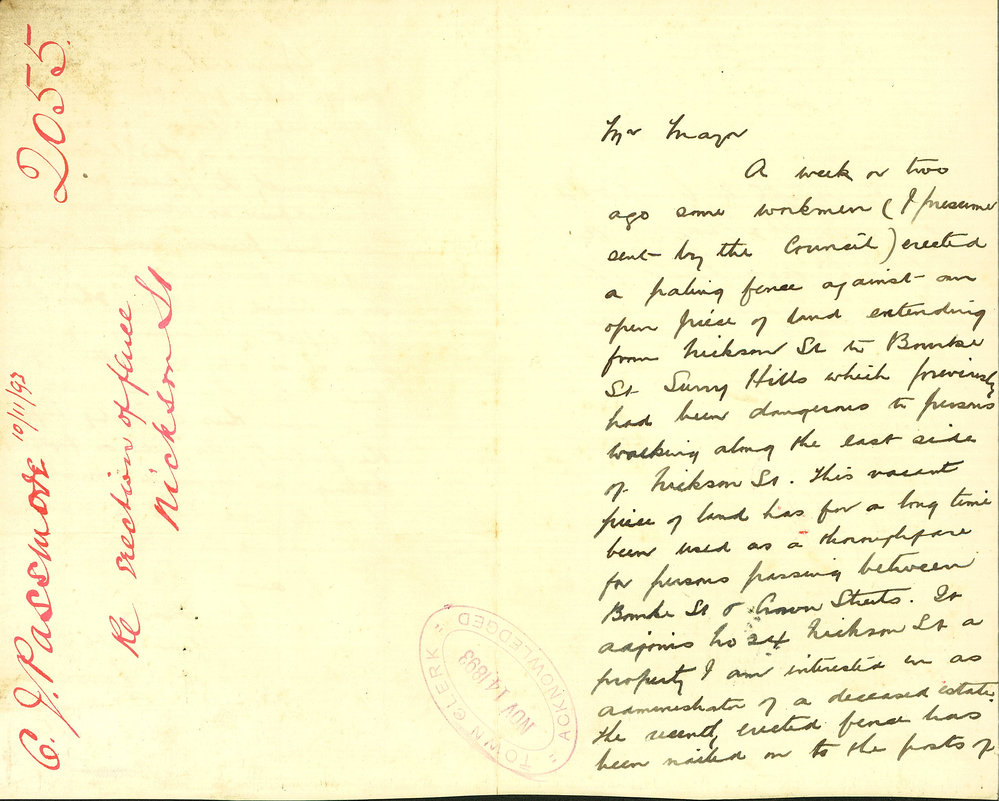 2055.
C. J. Passmore 10/11/93
Re erection of fence
Nickson St
TOWN CLERK
NOV 14 1893
ACKNOWLEDGED
Mr Mayor
A week or two
ago some workmen (I presume
sent by the Council) erected
a paling fence against an
open piece of land extending
from Nickson St to Bourke
St Surry Hills which previously
had been dangerous to persons
walking along the east side
of Nickson St. This vacant
piece of land has for a long time
been used as a thoroughfare
for persons passing between
Bourke St & Crown Streets. It
adjoins No 24 Nickson St a
property I am interested in as
administrator of a deceased estate.
The recently erected fence has
been nailed on to the posts of